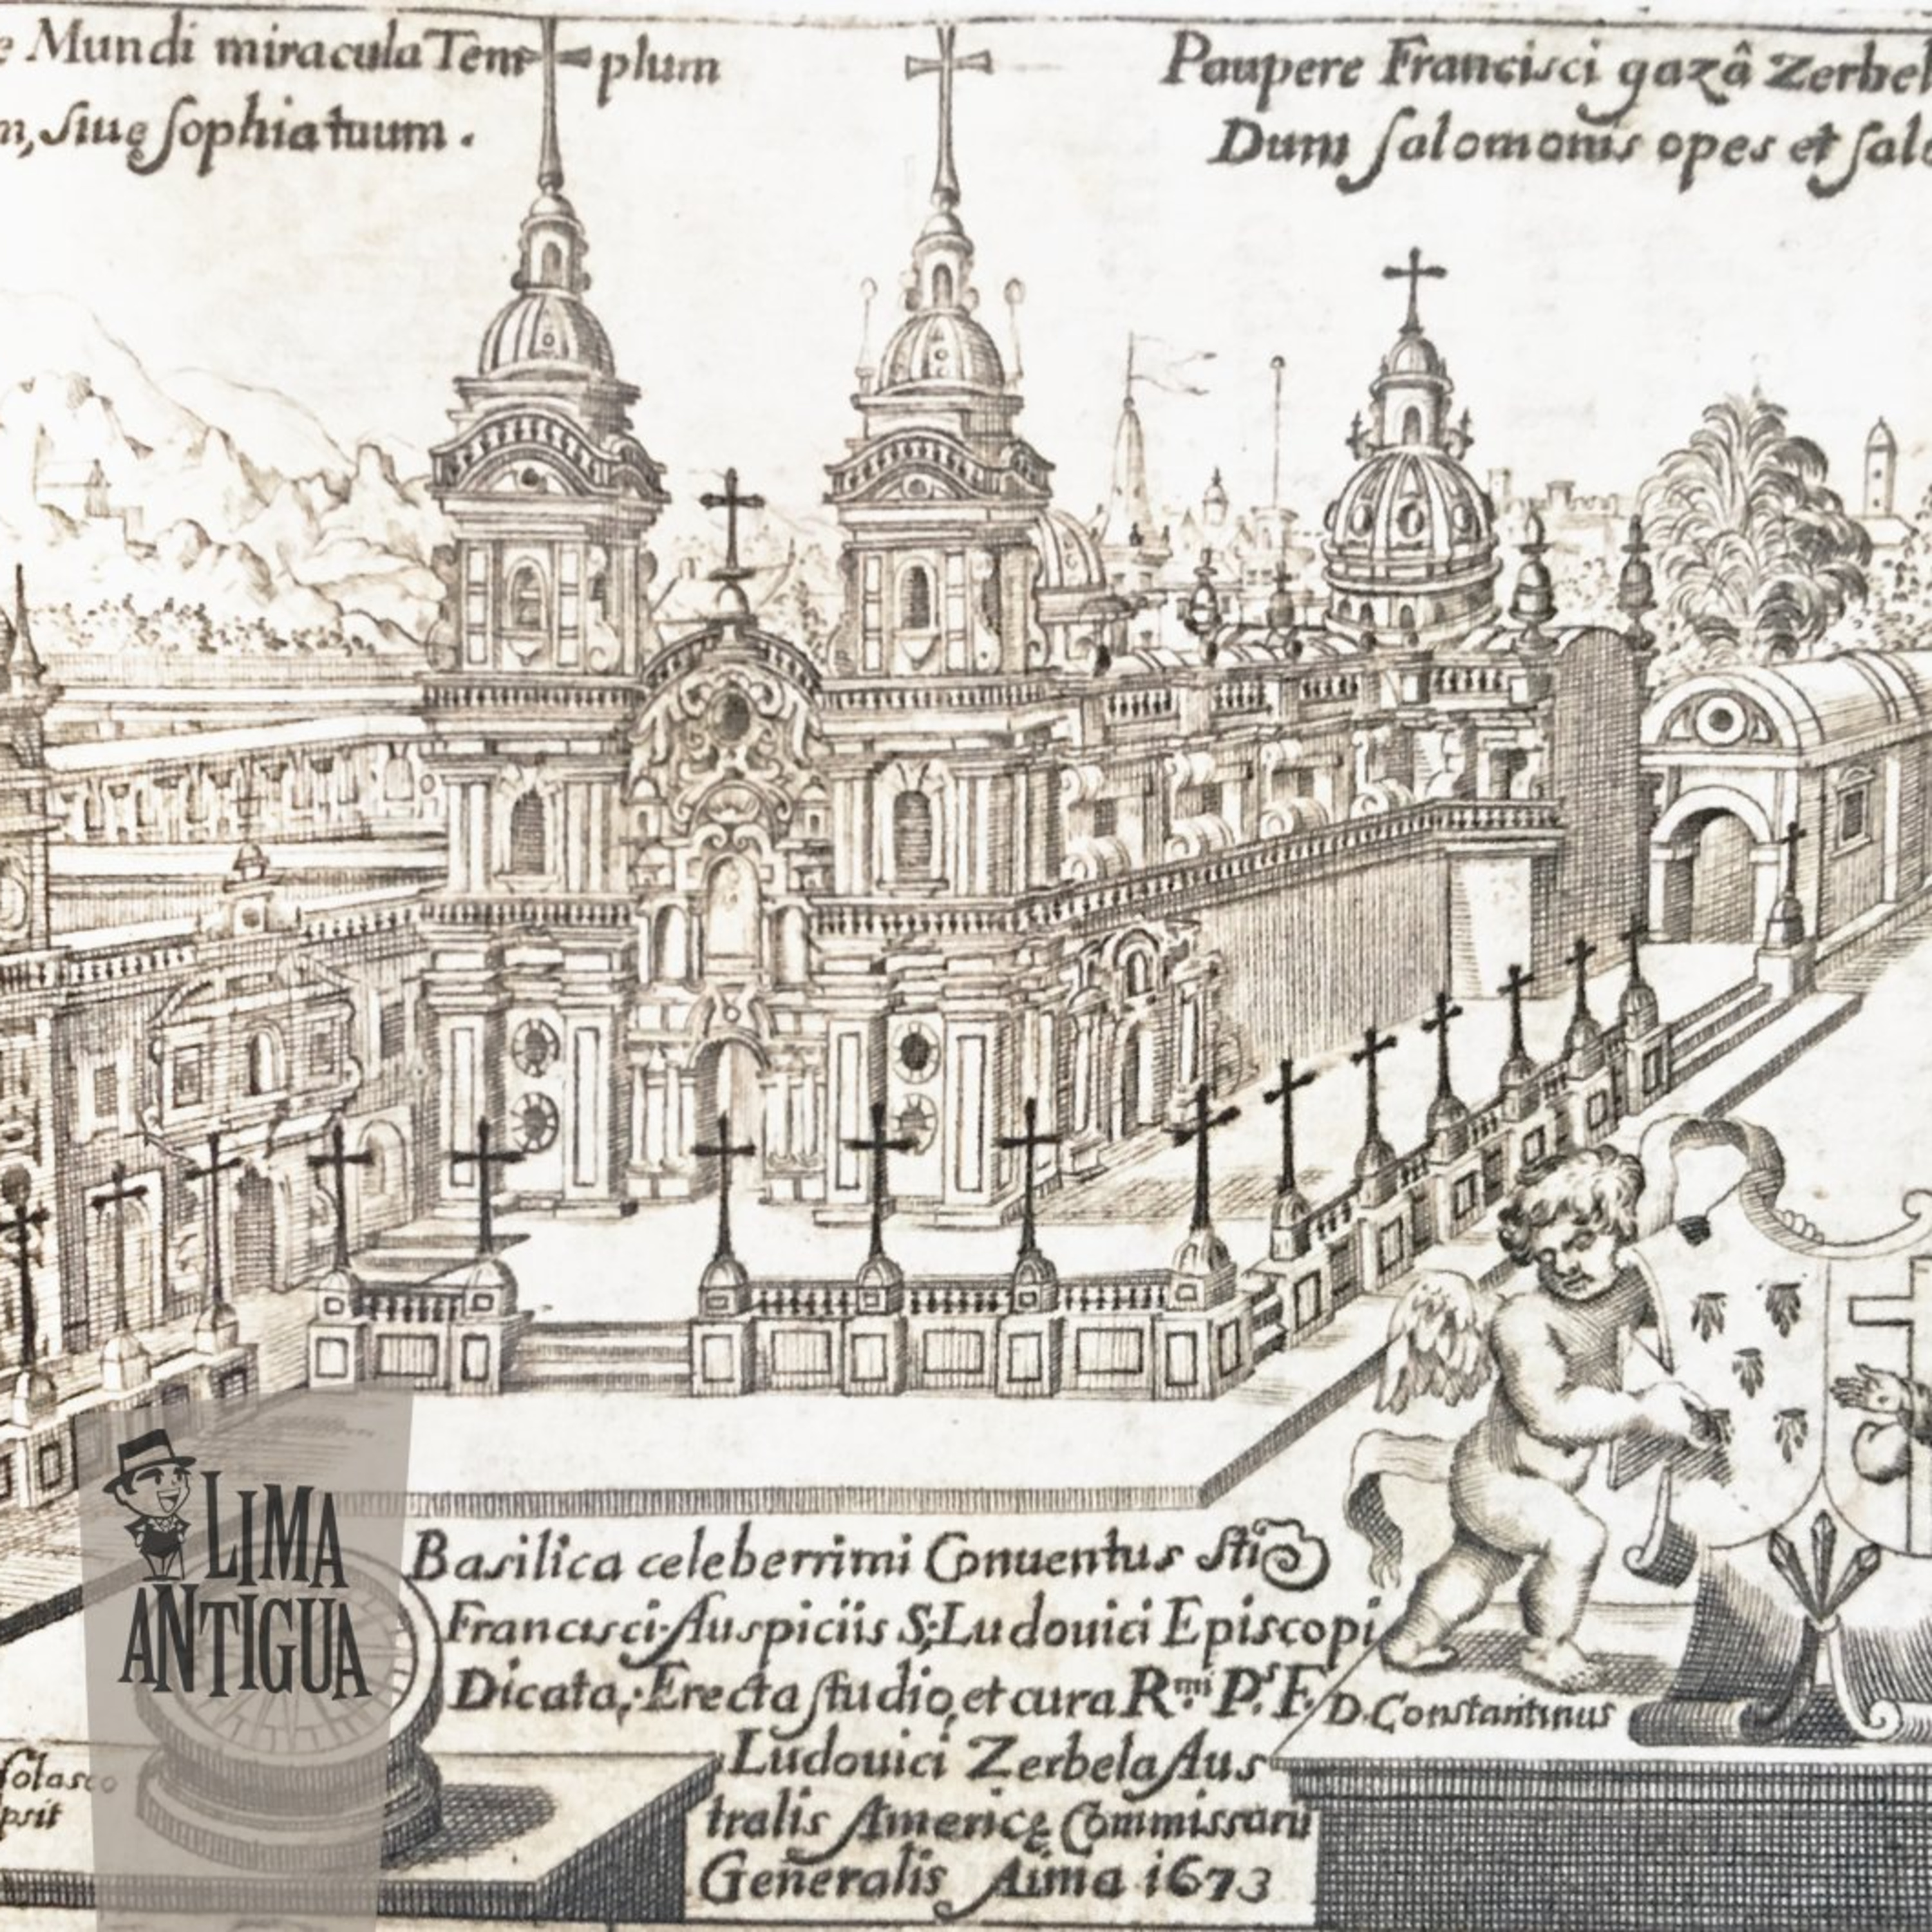 e Mundi miracula Templum
m, siuę sophia tuum.
Paupere Francisci gazâ Zerbel
Dum salomonis opes et salo
LIMA
ANTIGUA
Basilica celeberrimi Conuentus Sti
Francisci Auspiciis S. Ludouici Episcopi
Dicata, Erecta studio, et cura R.mi P.s F.
Ludouici Zerbela Aus
tralis Americę Commissarii
Generalis Lima 1673
D. Constantinus
solasco
psit